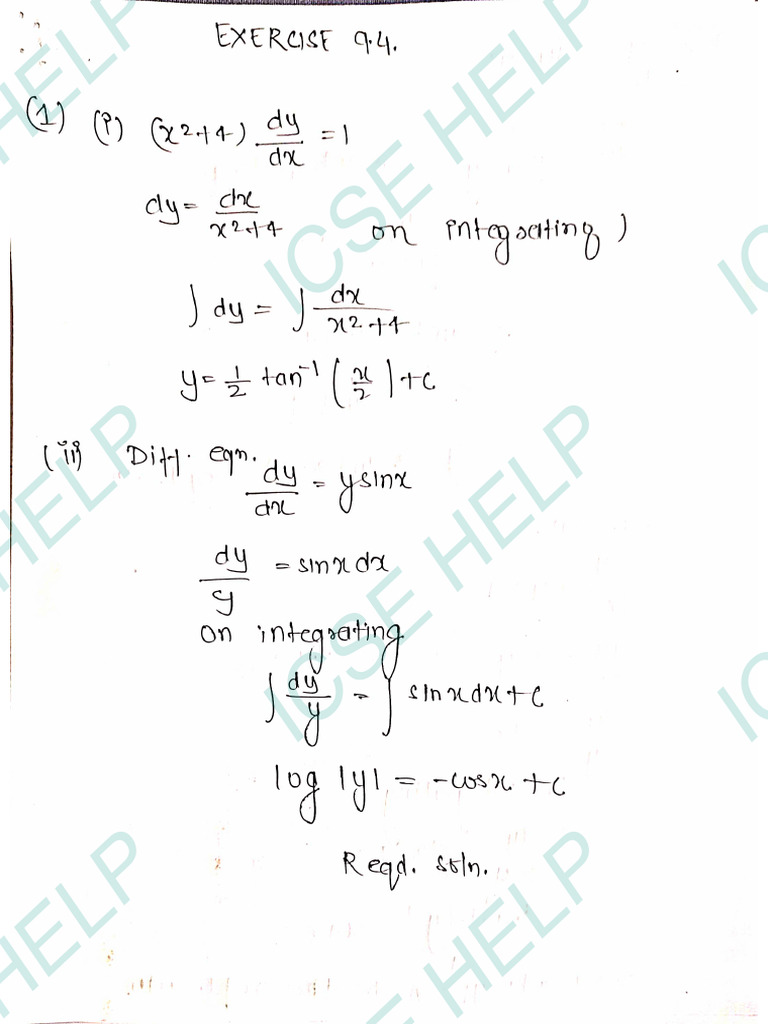 EXERCISE 9.4.
(1) (i) (x2+4) dy/dx = 1
dy = dx/x2+4 on integrating)
∫ dy = ∫ dx/x2+4
y = 1/2 tan-1 (x/2) + c
(ii) Diff. eqn.
dy/dx = y sinx
dy/y = sinx dx
on integrating
∫ dy/y = ∫ sinx dx + c
log |y| = -cosx + c
Reqd. soln.
ICSE HELP